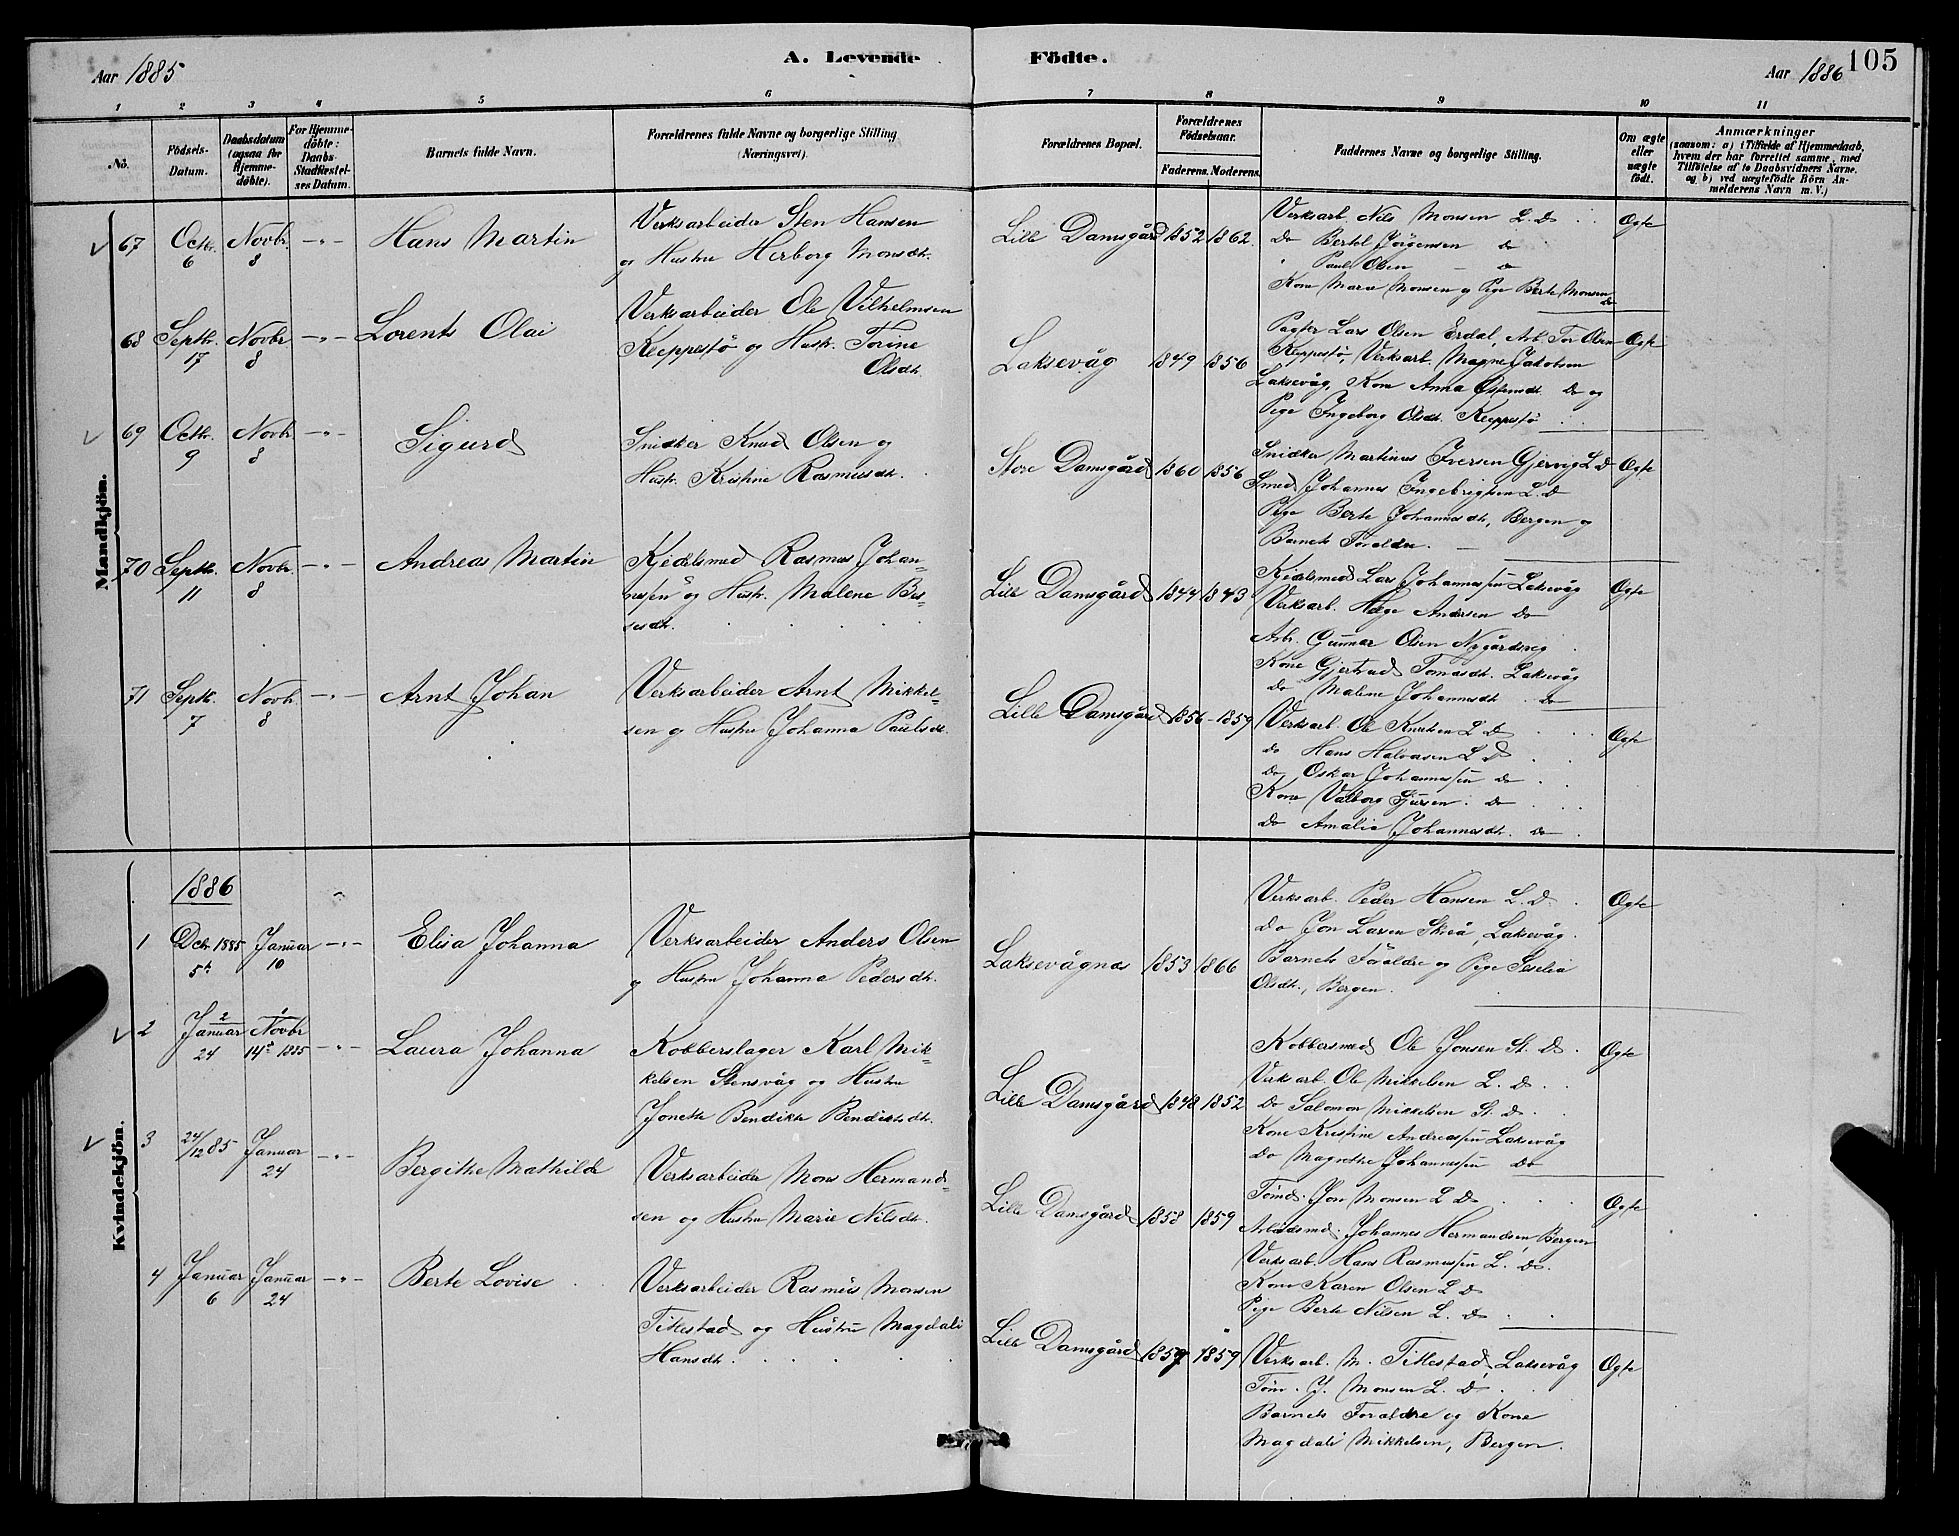 Aar 1885
A. Levende Födte.
Aar 1886
105
1 2 3 4 5 6 7 8 9 10 11
No.
Födsels-Datum.
Daabsdatum (ogsaa for Hjemme-döbte).
For Hjemme-döbte: Daabs-Stadfæstel-ses Datum.
Barnets fulde Navn.
Forældrenes fulde Navne og borgerlige Stilling (Næringsvei).
Forældrenes Bopæl.
Forældrenes Födselsaar.
Faderens. Moderens.
Faddernes Navne og borgerlige Stilling.
Om ægte eller uægte födt.
Anmærkninger
(saasom: a) i Tilfælde af Hjemmedaab,
hvem der har forrettet samme, med
Tilföielse af to Daabsvidners Navne.
og b) ved uægtefödte Börn An-
melderens Navn m. V.)
Mandkjön.
67 Octbr. 6 Novbr. 8 -"- Hans Martin
Verksarbeider Sten Hansen
og Hustru Herborg Monsdtr.
Lille Damsgård 1852 1862.
Verksarb. Nils Monsen L. D.
do Bertel Jörgensen do
" Paul Olsen - do
Kone Marie Monsen og Pige Berte Monsen do
Ægte
68 Septbr. 17 Novbr 8 -"- Lorents Olai
Verksarbeider Ole Vilhelmsen
Kleppestö og Hustr. Torine
Olsdtr.
Laksevåg 1849 1856
Pagter Lars Olsen Erdal, Arb. Tor Olsen
Kleppestö, Verksarb. Magne Jakobsen
Laksevåg, Kone Anna do og
Pige Ingeborg Olsdtr. Kleppestö
Ægte
69 Octbr. 9 Novbr 8 -"- Sigurd
Snidker Knud Olsen og
Hustr. Kristine Rasmusdtr.
Store Damsgård 1860 1856
Snidker Martinus Iversen Gjervig L. D
Smed Johannes Ingebrigtsen L. D
Pige Berte Johannesdtr, Bergen og
Barnets Forældre.
Ægte
70 Septbr. 11 Novbr. 8 -"- Andreas Martin
Kjedelsmed Rasmus Johan-
nessen og Hustr. Malene Bas-
sesdtr.
Lille Damsgård 1844 1843
Kjedelsmed Lars Johannessen Laksevåg
Verksarb. Hage Andersen do
Arb. Gunnar Olsen Nygårdsvig
Kone Gjertrud Tomasdtr. Laksevåg
do Malene Johannesdtr. do
Ægte
71 Septbr. 7 Novbr. 8 -"- Arnt Johan
Verksarbeider Arnt Mikkel-
sen og Hustru Johanna Paulsdtr.
Lille Damsgård 1856 - 1859
Verksarb. Ole Knutsen L. D
do Hans Halvorsen L D
do Oskar Johannessen do
Kone Valborg Iversen do
do Amalie Johannesdtr. do
Ægte
Kvindekjön.
1886
1 Dcbr 1885 5te Januar 10 -"- Elisa Johanna
Verksarbeider Anders Olsen
og Hustru Johanna Pedersdtr.
Laksevågnæs 1853 1866
Verksarb. Peder Hansen L. D.
do Jon Larsen Skreå, Laksevåg.
Barnets Forældre og Pige Seselia
Olsdtr., Bergen.
Ægte
2 2 Januar 24 1 Novbr 14de 1885 -"- Laura Johanna
Kobberslager Karl Mik-
kelsen Stensvåg og Hustru
Jonette Bendikte Bendiktsdtr.
Lille Damsgård 1848 1852
Kobbersmed Ole Jonsen St. D.
Verksarb. Ole Mikkelsen L. D.
do Salomon Mikkelsen St. D.
Kone Kristine Andreassen Laksevåg
do Magrethe Johannessen do
Ægte
3 24/12 85 Januar 24 -"- Bergithe Mathilde
Verksarbeider Mons Hermand-
sen og Hustru Marie Nilsdtr.
Lille Damsgård 1858 1859
Tömd. Jon Monsen L D.
Arbeidsmd. Johannes Hermandsen Bergen
Verksarb. Hans Rasmussen L. D.
Kone Karen Olsen L D
Pige Berte Nilsen L. D.
Ægte
4 Januar 6 Januar 24 -"- Berte Lovise
Verksarbeider Rasmus Monsen
Titlestad og Hustru Magdali
Hansdtr.
Lille Damsgård 1857 1859
Verksarb. M. Titlestad, Laksevåg
Tömr. J. Monsen L. D.
Barnets Forældre og Kone
Magdali Mikkelsen, Bergen.
Ægte